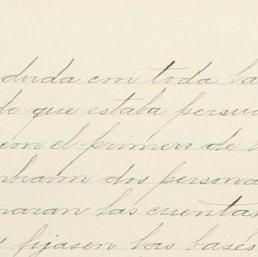 deuda con toda la
de que estaba persua
con el primero de
mbrarm dos persona
naran las cuentas
s fijasen las bases